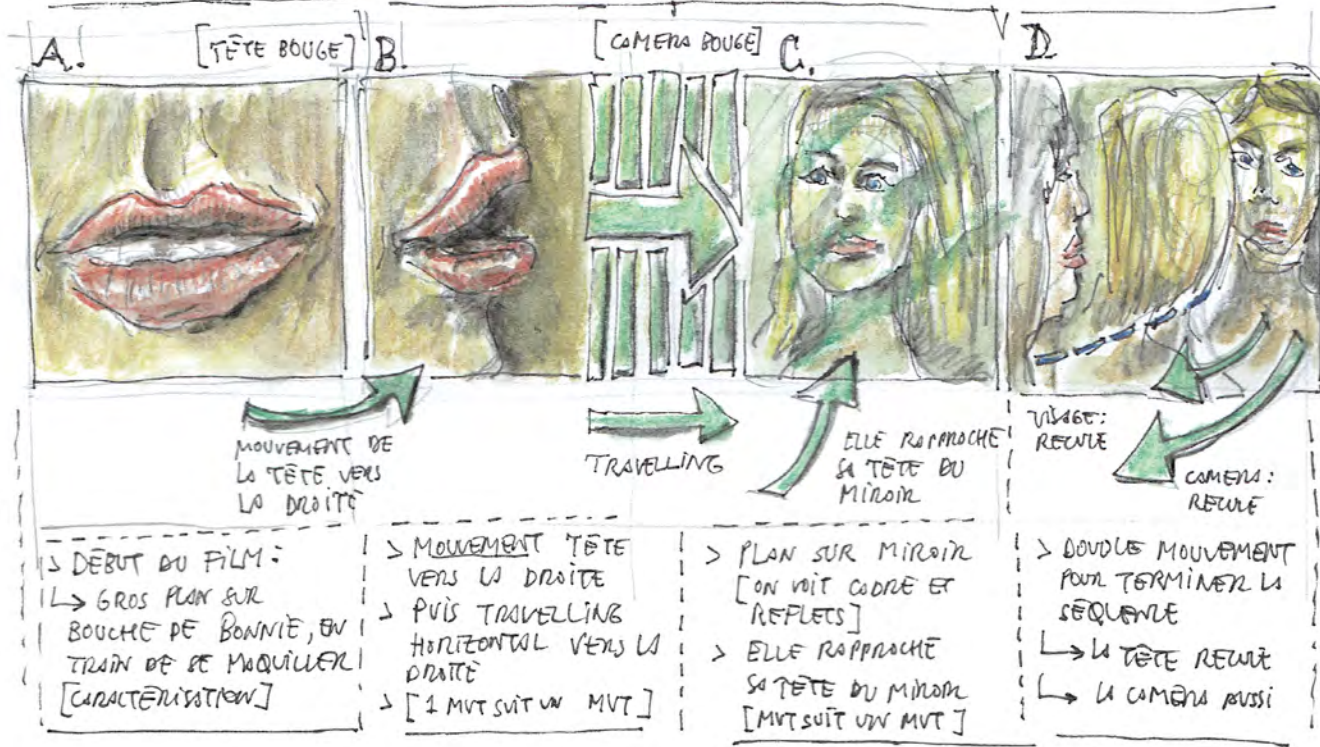 A.
[TÊTE BOUGE]
B.
[CAMERA BOUGE]
C.
D.
MOUVEMENT DE
LA TÊTE VERS
LA DROITE
TRAVELLING
ELLE RAPPROCHE
SA TÊTE DU
MIROIR
VISAGE:
RECULE
CAMERA:
RECULE
> DÉBUT DU FILM:
↳ GROS PLAN SUR
BOUCHE DE BONNIE, EN
TRAIN DE SE MAQUILLER
[CARACTÉRISATION]
> MOUVEMENT TÊTE
VERS LA DROITE
> PUIS TRAVELLING
HORIZONTAL VERS LA
DROITE
> [1 MVT SUIT UN MVT]
> PLAN SUR MIROIR
[ON VOIT CADRE ET
REFLETS]
> ELLE RAPPROCHE
SA TÊTE DU MIROIR
[MVT SUIT UN MVT]
> DOUBLE MOUVEMENT
POUR TERMINER LA
SÉQUENCE
↳ LA TÊTE RECULE
↳ LA CAMERA AUSSI